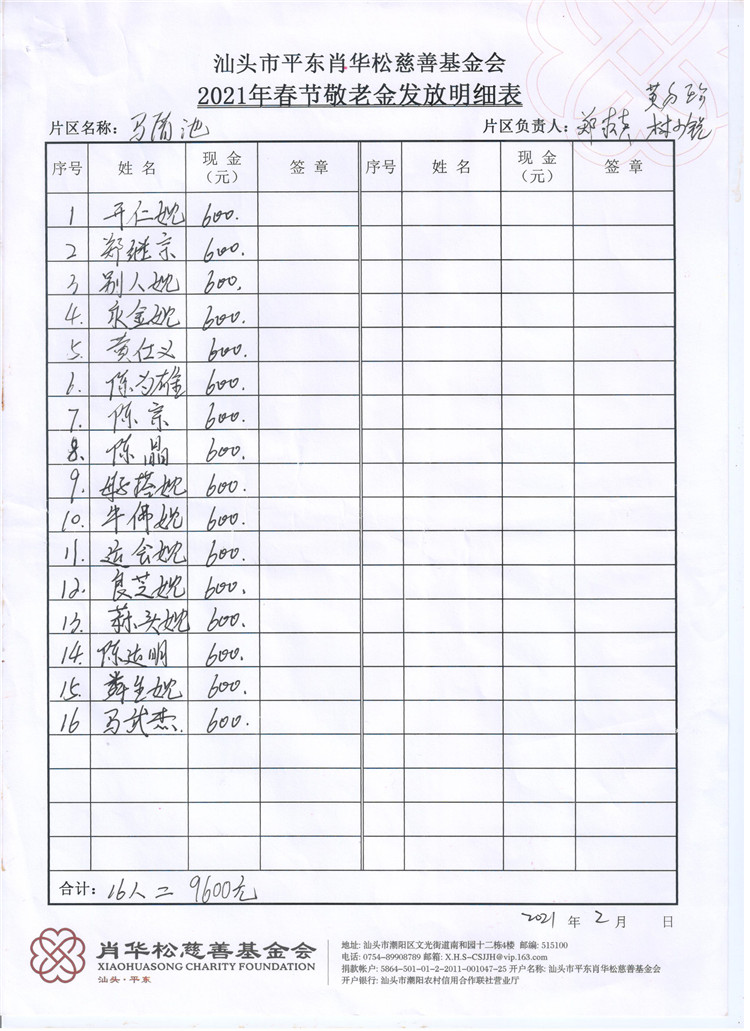 汕头市平东肖华松慈善基金会
2021年春节敬老金发放明细表
片区名称： 片区负责人：
序号 姓 名 现 金（元） 签 章 序号 姓 名 现 金（元） 签 章
1 开仁妣 600.
2 郑继宗 600.
3 别人妣 600.
4. 永金妣 600.
5. 黄仕义 600.
6. 陈为雄 600.
7. 陈京 600.
8. 陈晶 600.
9. 600.
10. 牛佛妣 600.
11. 运会妣 600.
12. 良芝妣 600.
13. 600.
14. 陈达明 600.
15. 600.
16 马武杰. 600.
合计：16人 = 9600元
2021 年 2 月 日
肖华松慈善基金会
XIAOHUASONG CHARITY FOUNDATION
汕头·平东
地址: 汕头市潮阳区文光街道南和园十二栋4楼 邮编: 515100
电话: 0754-89908789 邮箱: X.H.S-CSJJH@vip.163.com
捐款帐户: 5864-501-01-2-2011-001047-25 开户名称: 汕头市平东肖华松慈善基金会
开户银行: 汕头市潮阳农村信用合作联社营业厅